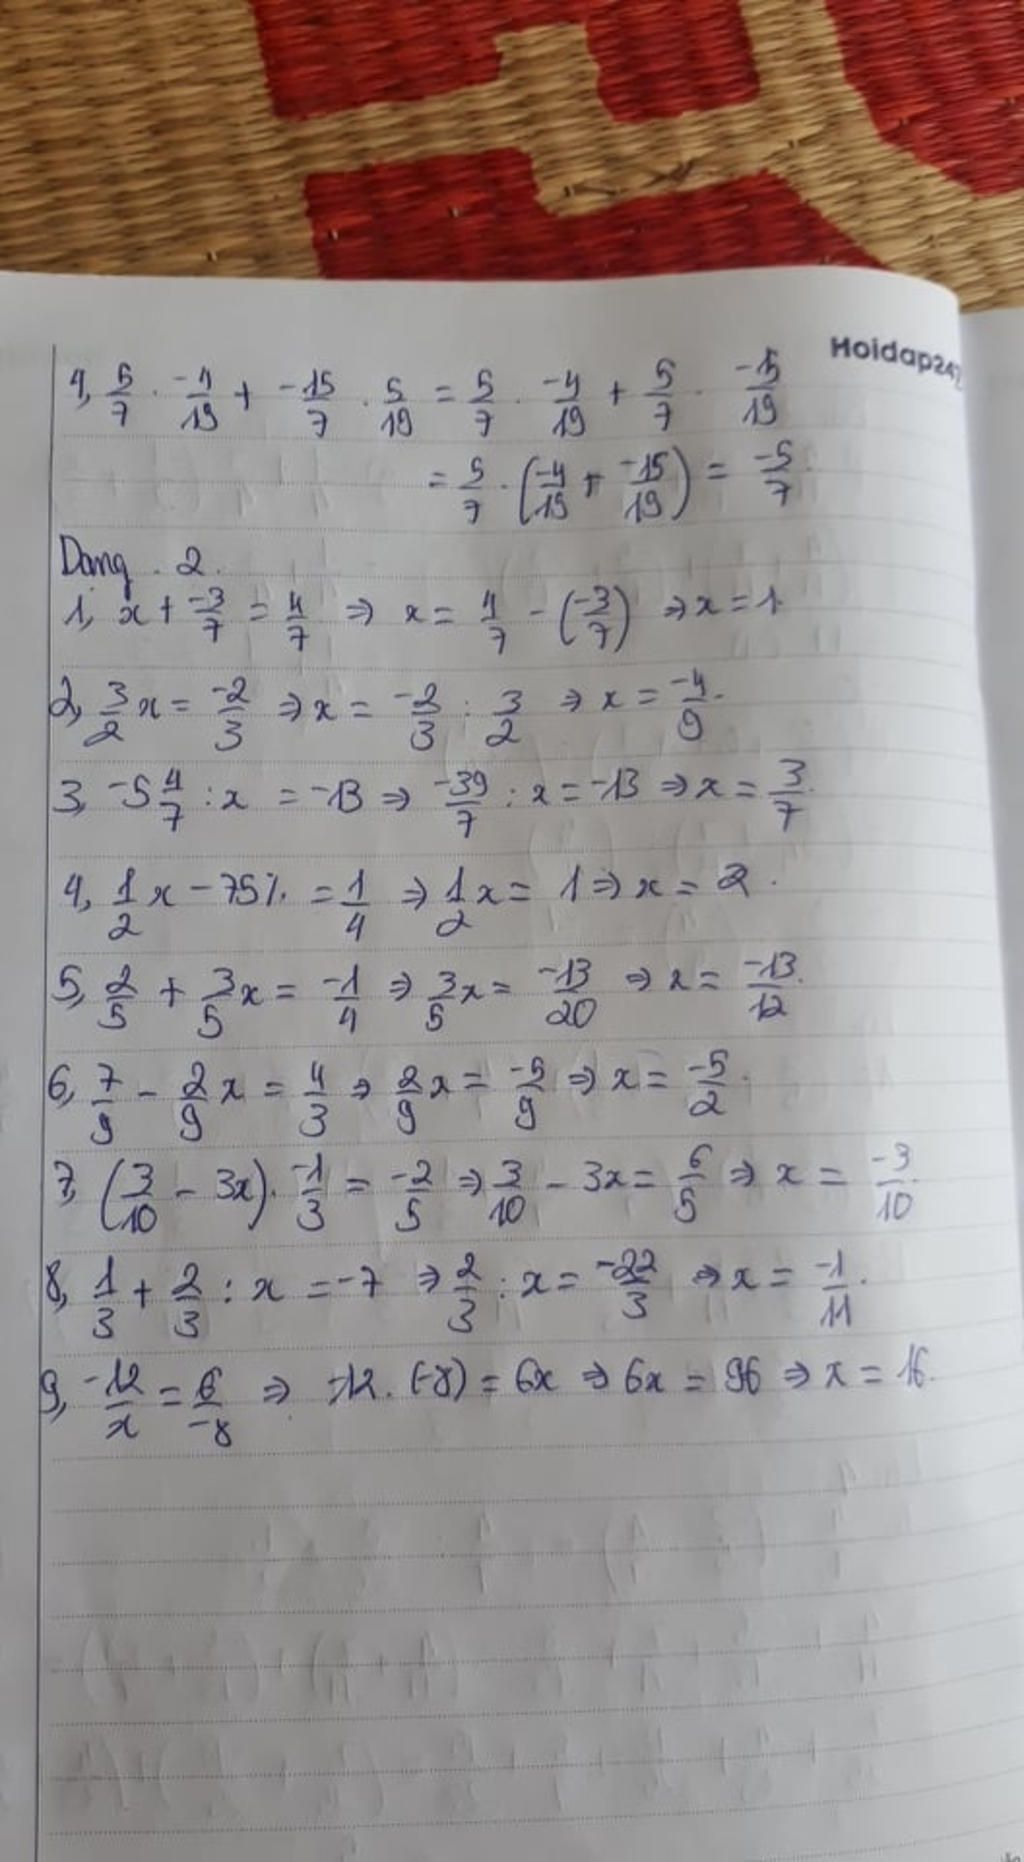 Hoidap247
4, 5/7 . -4/19 + -15/7 . 5/19 = 5/7 . -4/19 + 5/7 . -15/19
= 5/7 . (-4/19 + -15/19) = -5/7.
Dạng 2.
1, x + -3/7 = 4/7 => x = 4/7 - (-3/7) => x = 1.
2, 3/2 x = -2/3 => x = -2/3 : 3/2 => x = -4/9.
3, -5 4/7 : x = -13 => -39/7 : x = -13 => x = 3/7.
4, 1/2 x - 75% = 1/4 => 1/2 x = 1 => x = 2.
5, 2/5 + 3/5 x = -1/4 => 3/5 x = -13/20 => x = -13/12.
6, 7/9 - 2/9 x = 4/3 => 2/9 x = -5/9 => x = -5/2.
7, (3/10 - 3x) . -1/3 = -2/5 => 3/10 - 3x = 6/5 => x = -3/10.
8, 1/3 + 2/3 : x = -7 => 2/3 : x = -22/3 => x = -1/11.
9, -12/x = 6/-8 => -12 . (-8) = 6x => 6x = 96 => x = 16.